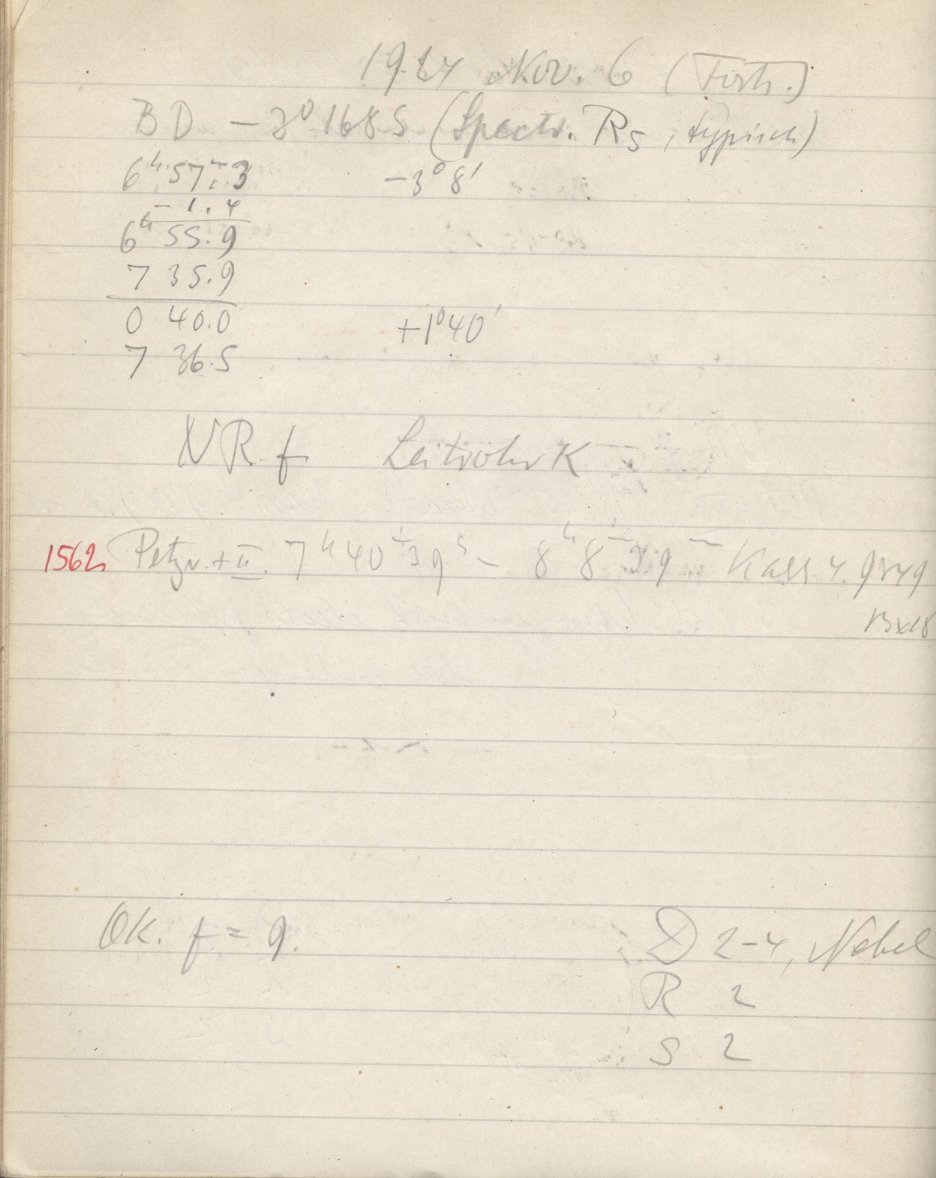 1924 Nov. 6 (Forts.)
BD -3° 1685 (Spectr. R5, typisch)
6ʰ 57ᵐ.3 -3° 8'
- 1.4
6ʰ 55.9
7 35.9
0 40.0 +1° 40'
7 36.5
NR f Leitrohr K
1562. Petzv. + II. 7ʰ 40ᵐ 39ˢ - 8ʰ 8ᵐ 39 Kass. 4.
OK. f = 9. D 2-4, Nebel
R 2
S 2